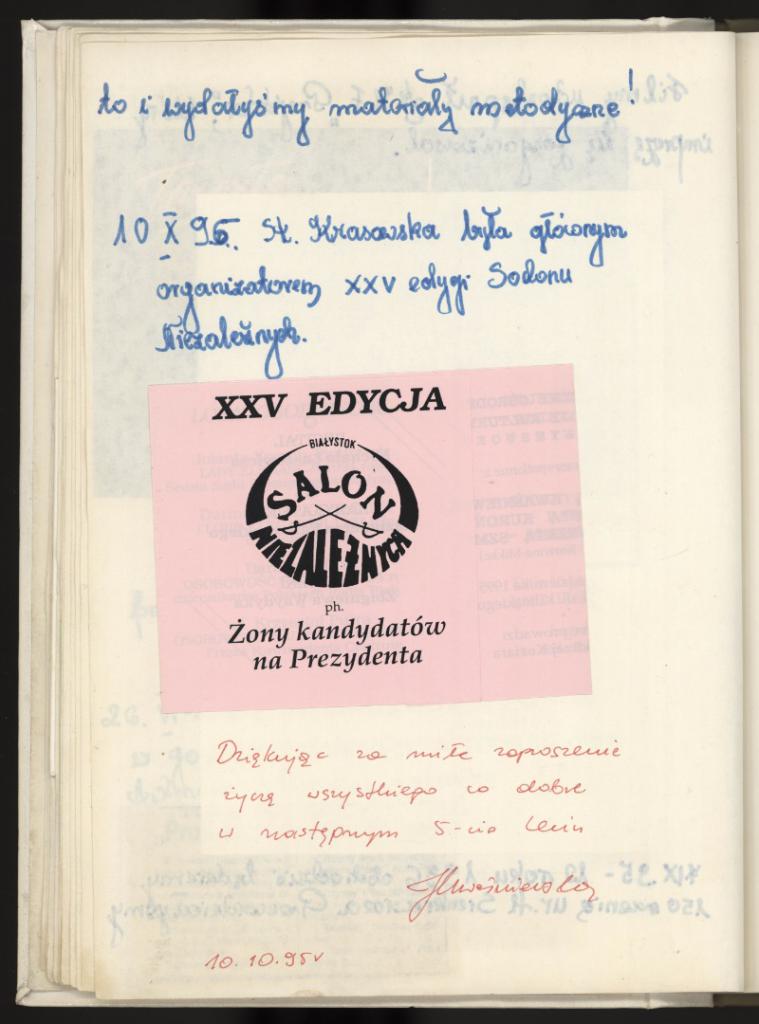 to i wydałyśmy materiały metodyczne!
10 X 95. St. Krasowska była głównym
organizatorem XXV edycji Salonu
Niezależnych.
XXV EDYCJA
BIAŁYSTOK
SALON
NIEZALEŻNYCH
ph.
Żony kandydatów
na Prezydenta
Dziękując za miłe zaproszenie
życzę wszystkiego co dobre
w następnym 5-cio leciu
JKwaśniewska
10.10.95r